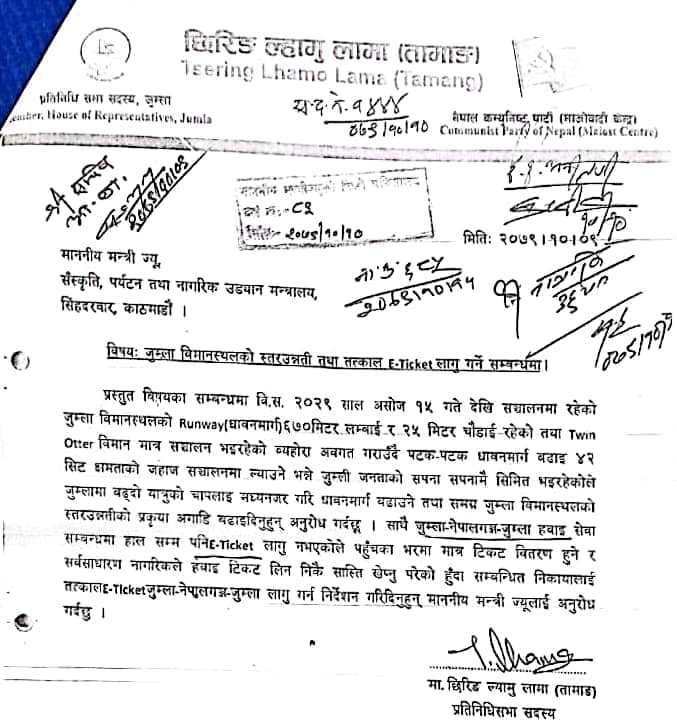 छिरिङ ल्हामु लामा (तामाङ)
Tsering Lhamo Lama (Tamang)
प्रतिनिधि सभा सदस्य, जुम्ला
ember, House of Representatives, Jumla
नेपाल कम्युनिष्ट पार्टी (माओवादी केन्द्र)
Communist Party of Nepal (Maoist Centre)
मिति: २०७९।१०।०९
माननीय मन्त्री ज्यू,
संस्कृति, पर्यटन तथा नागरिक उडयान मन्त्रालय,
सिंहदरवार, काठमाडौं ।
विषय: जुम्ला विमानस्थलको स्तरउन्नती तथा तत्काल E-Ticket लागु गर्ने सम्बन्धमा।
प्रस्तुत विषयका सम्बन्धमा वि.स. २०२९ साल असोज १५ गते देखि सञ्चालनमा रहेको
जुम्ला विमानस्थलको Runway(धावनमार्ग)६७०मिटर लम्बाई र २५ मिटर चौडाई रहेको तथा Twin
Otter विमान मात्र सञ्चालन भइरहेको व्यहोरा अवगत गराउँदै पटक-पटक धावनमार्ग बढाइ ४२
सिट क्षमताको जहाज सञ्चालनमा ल्याउने भन्ने जुम्ली जनताको सपना सपनामै सिमित भइरहेकोले
जुम्लामा बढ्दो यात्रुको चापलाइ मध्यनजर गरि धावनमार्ग बढाउने तथा समग्र जुम्ला विमानस्थलको
स्तरउन्नतीको प्रकृया अगाडि बढाइदिनुहुन् अनुरोध गर्दछु । साथै जुम्ला-नेपालगञ्ज-जुम्ला हवाइ सेवा
सम्बन्धमा हाल सम्म पनिE-Ticket लागु नभएकोले पहुँचका भरमा मात्र टिकट वितरण हुने र
सर्वसाधारण नागरिकले हवाइ टिकट लिन निकै सास्ति खेप्नु परेको हुँदा सम्बन्धित निकायलाई
तत्कालE-Ticketजुम्ला-नेपालगञ्ज-जुम्ला लागु गर्न निर्देशन गरिदिनुहुन् माननीय मन्त्री ज्यूलाई अनुरोध
गर्दछु ।
मा. छिरिङ ल्यामु लामा (तामाङ)
प्रतिनिधिसभा सदस्य